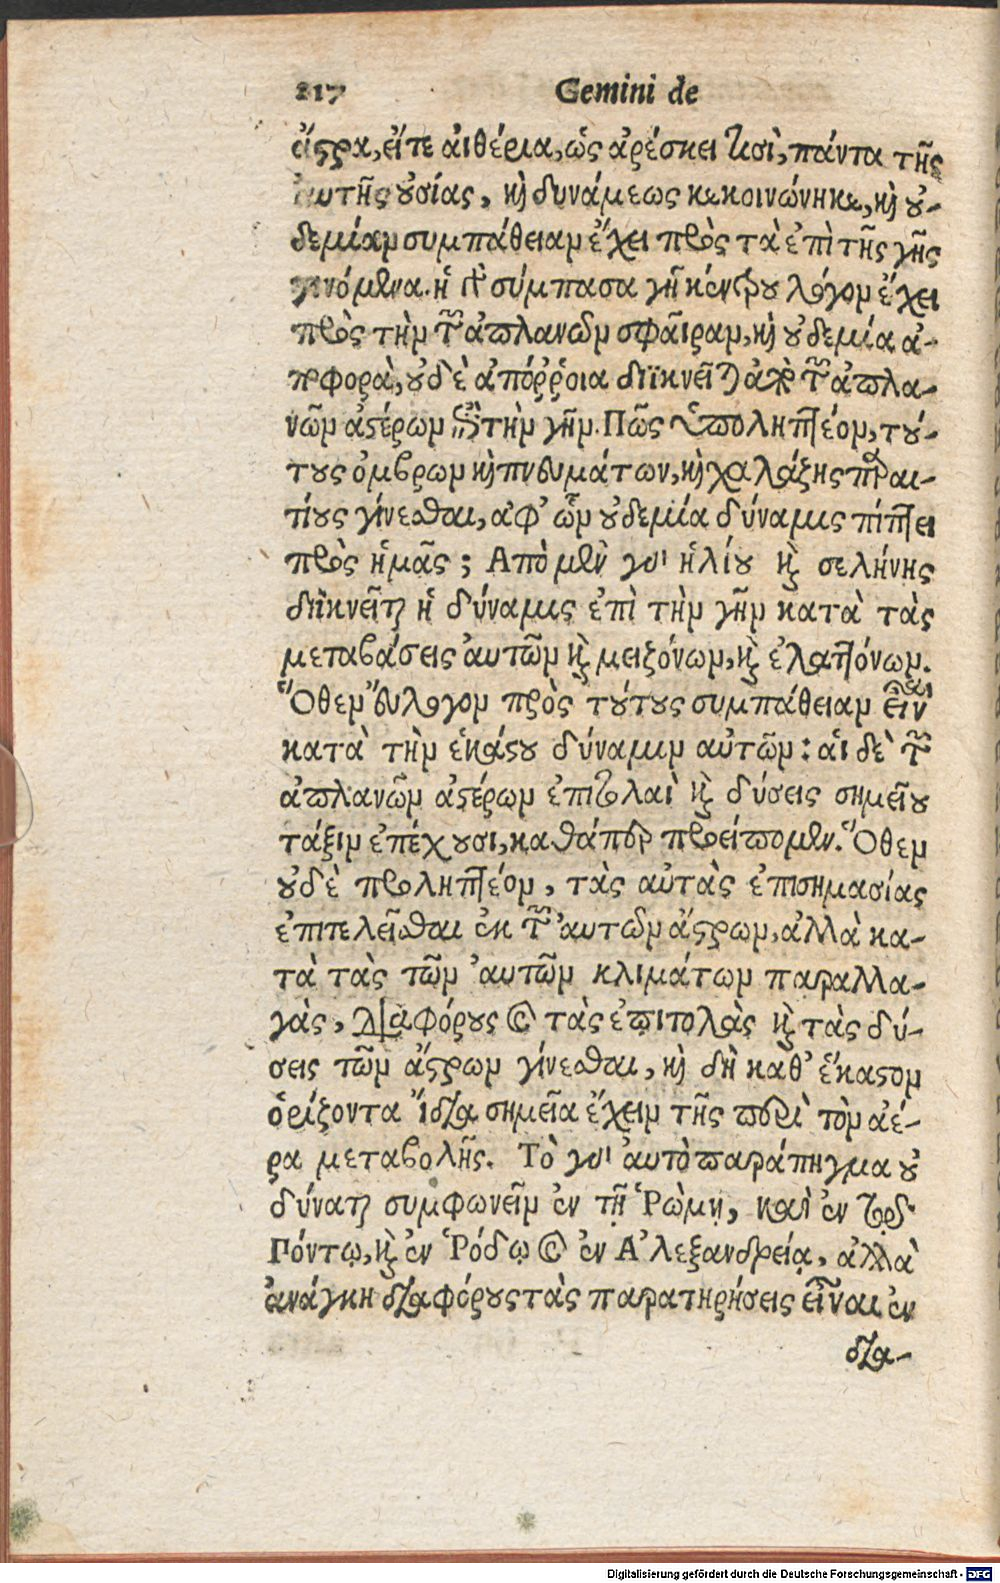 217 Gemini de
ἄστρα, εἴτε αἰθέρια, ὡς ἀρέσκει τισὶ, πάντα τῆς
ἀυτῆς οὐσίας, καὶ δυνάμεως κεκοινώνηκε, καὶ οὐ-
δεμίαν συμπάθειαν ἔχει πρὸς τὰ ἐπὶ τῆς γῆς
γινόμενα. ἡ γὰρ σύμπασα γῆ κέντρου λόγον ἔχει
πρὸς τὴν τῶν ἀπλανῶν σφαῖραν, καὶ οὐδεμία ἀ-
ποφορὰ, οὐδὲ ἀπόῤῥοια διϊκνεῖται ἀπὸ τῶν ἀπλα-
νῶν ἀστέρων ἐπὶ τὴν γῆν. Πῶς ὑποληπτέον, τού-
τους ὄμβρων καὶ πνευμάτων, καὶ χαλάζης παραι-
τίους γίνεσθαι, ἀφ' ὧν οὐδεμία δύναμις πίπτει
πρὸς ἡμᾶς; Απὸ μὲν γὰρ ἡλίου καὶ σελήνης
διϊκνεῖται ἡ δύναμις ἐπὶ τὴν γῆν κατὰ τὰς
μεταβάσεις ἀυτῶν καὶ μειζόνων, καὶ ἐλαττόνων.
Ὅθεν ἔυλογον πρὸς τούτους συμπάθειαν εἶναι
κατὰ τὴν ἑκάστου δύναμιν αὐτῶν: αἱ δὲ τῶν
ἀπλανῶν ἀστέρων ἐπιτολαὶ καὶ δύσεις σημείου
τάξιν ἐπέχουσι, καθάπερ προείπομεν. Ὅθεν
οὐδὲ προληπτέον, τὰς αὐτὰς ἐπισημασίας
ἐπιτελεῖσθαι ἐκ τῶν ἀυτῶν ἄστρων, ἀλλὰ κα-
τὰ τὰς τῶν ἀυτῶν κλιμάτων παραλλα-
γὰς, διαφόρους καὶ τὰς ἐπιτολὰς καὶ τὰς δύ-
σεις τῶν ἄστρων γίνεσθαι, καὶ δὴ καθ' ἕκαστον
ὁρίζοντα ἴδια σημεῖα ἔχειν τῆς περὶ τὸν ἀέ-
ρα μεταβολῆς. Τὸ γὰρ ἀυτὸ παράπηγμα οὐ
δύναται συμφωνεῖν ἐν τῇ Ῥώμῃ, καὶ ἐν τῷ
Πόντῳ, καὶ ἐν Ῥόδῳ καὶ ἐν Ἀλεξανδρείᾳ, ἀλλὰ
ἀνάγκη διαφόρους τὰς παρατηρήσεις εἶναι ἐν
δια-
Digitalisierung gefördert durch die Deutsche Forschungsgemeinschaft - DFG